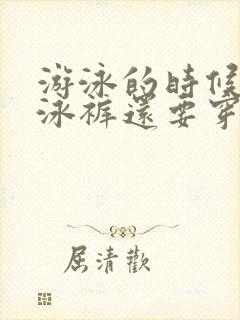 游泳的時候
泳褲還要穿
屈清歡